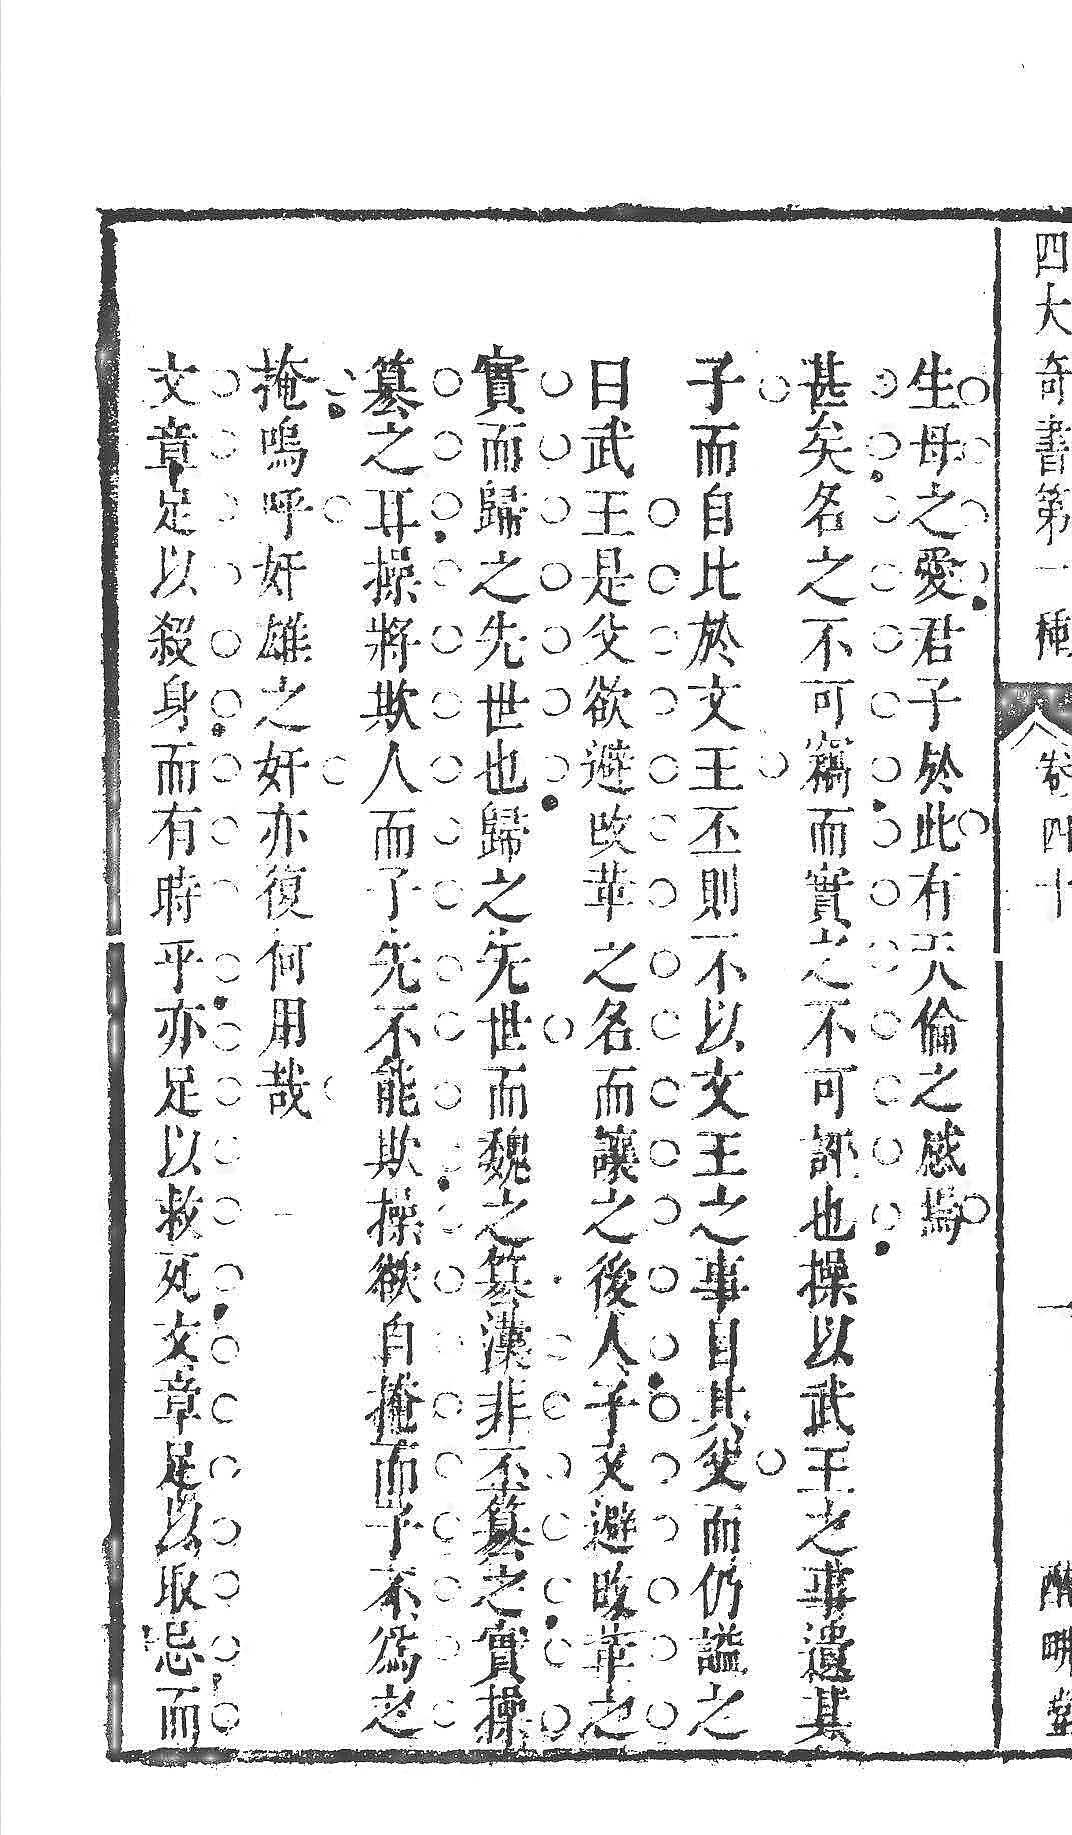 四大奇書第一種 卷四十 一 醉畊堂
生母之愛君子於此有天倫之感焉
甚矣名之不可竊而實之不可誣也操以武王之事遺其
子而自比於文王丕則不以文王之事自其父而仍謚之
曰武王是父欲避改革之名而讓之後人子又避改革之
實而歸之先世也歸之先世而魏之篡漢非丕篡之實操
篡之耳操將欺人而子先不能欺操欲自掩而子不為之
掩嗚呼奸雄之奸亦復何用哉
文章足以殺身而有時乎亦足以救死文章足以取忌而